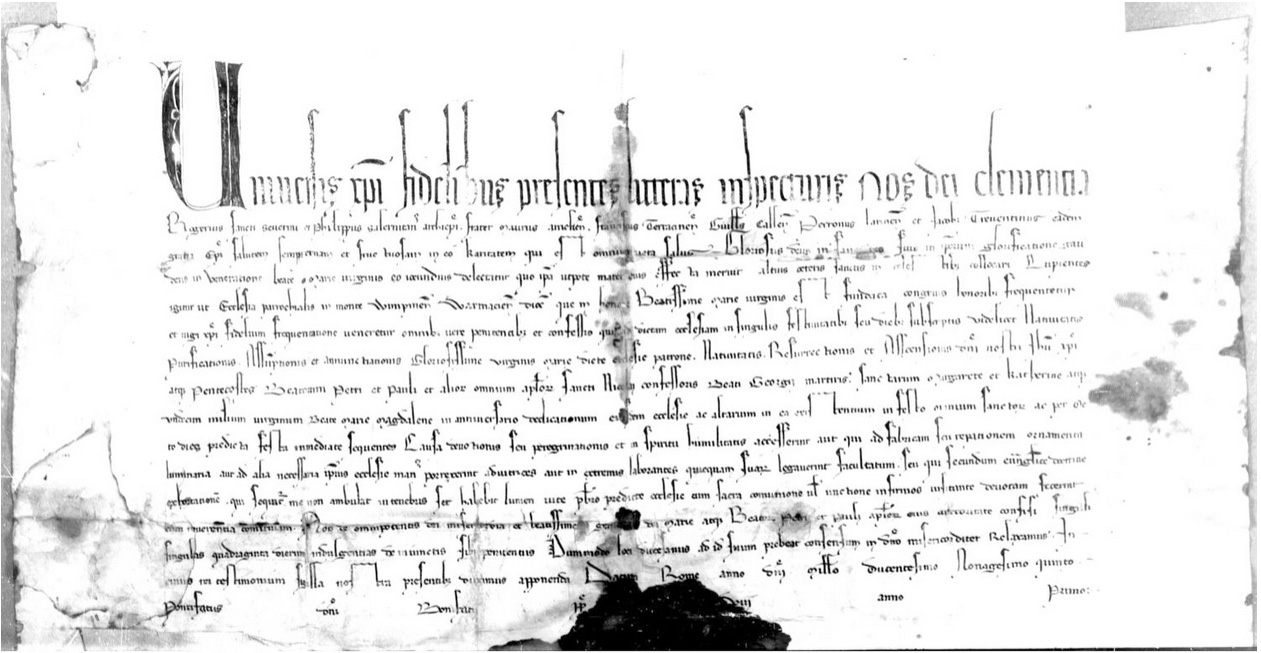 Uniuersis xpi fidelibus presentes litteras inspecturis Nos dei clementia
Rogerius sancti seuerini et Philippus salernitan archiepi. frater Maurus amelien. Guillus Callen Perronus Larinen et Jacobus Treuentinus eadem
gratia Epi salutem sempiternam et in eo karitatem qui est omnium uera salus Gloriosus deus in sanctis suis in ipsorum glorificatione gau
dens in ueneratione beate Marie uirginis eo iocundius delectatur quo ipsa utpote mater eius effecta meruit altius ceteris sanctis in celestibus collocari Cupientes
igitur ut Ecclesia parrochialis in monte Wimpinen Warmacien dioc que in honore Beatissime Marie uirginis est fundata congruis honoribus frequentetur
et iugi xpi fidelium frequentatione ueneretur omnibus uere penitentibus et confessis qui dictam ecclesiam in singulis festiuitatibus seu diebus subscriptis uidelicet Natiuitatis
Purificationis Assumptionis et annunctiationis Gloriosissime uirginis marie dicte ecclesie patrone. Natiuitatis. Resurrectionis et Ascensionis dni nostri Ihu xpi
atq Pentecostes Beatorum Petri et Pauli et alior omnium aplor sancti Nicolai confessoris Beati Georgii martiris. sanctarum Margarete et katherine atq
undecim milium uirginum Beate Marie Magdalene in anniuersario dedicationum eiusdem ecclesie ac altarum in ea existentium in festo omnium sanctor ac per oc
to dies predicta festa inmediate sequentes Causa deuotionis seu peregrinationis et in spiritu humilitatis accesserint aut qui ad fabricam seu reparationem ornamenta
luminaria aut ad alia necessaria ipsius ecclesie manus porrexerint adiutrices aut in extremis laborantes quicquam suar legauerint facultatum. seu qui secundum euuangelice doctrine
exhortatione. qui sequitur me non ambulat in tenebris set habebit lumen uite pbro predicte ecclesie cum sacra comunione uel unctione infirmos uisitante deuotam fecerint
cum reuerentia comitiuam. Nos de omnipotentis dei misericordia et beatissime genitricis dei marie atq Beator Petri et Pauli aplor eius auctoritate confisi singuli
singulas quadraginta dierum indulgentias de iniunctis sibi penitentiis Dummodo loci diocesanus ad id suum prebeat consensum in dno misericorditer Relaxamus. In
cuius rei testimonium sigilla nostra presentibus duximus apponenda Datum Rome anno dni Millo ducentesimo Nonagesimo quinto
Pontificatus dni Bonifatii pp VIII anno Primo: